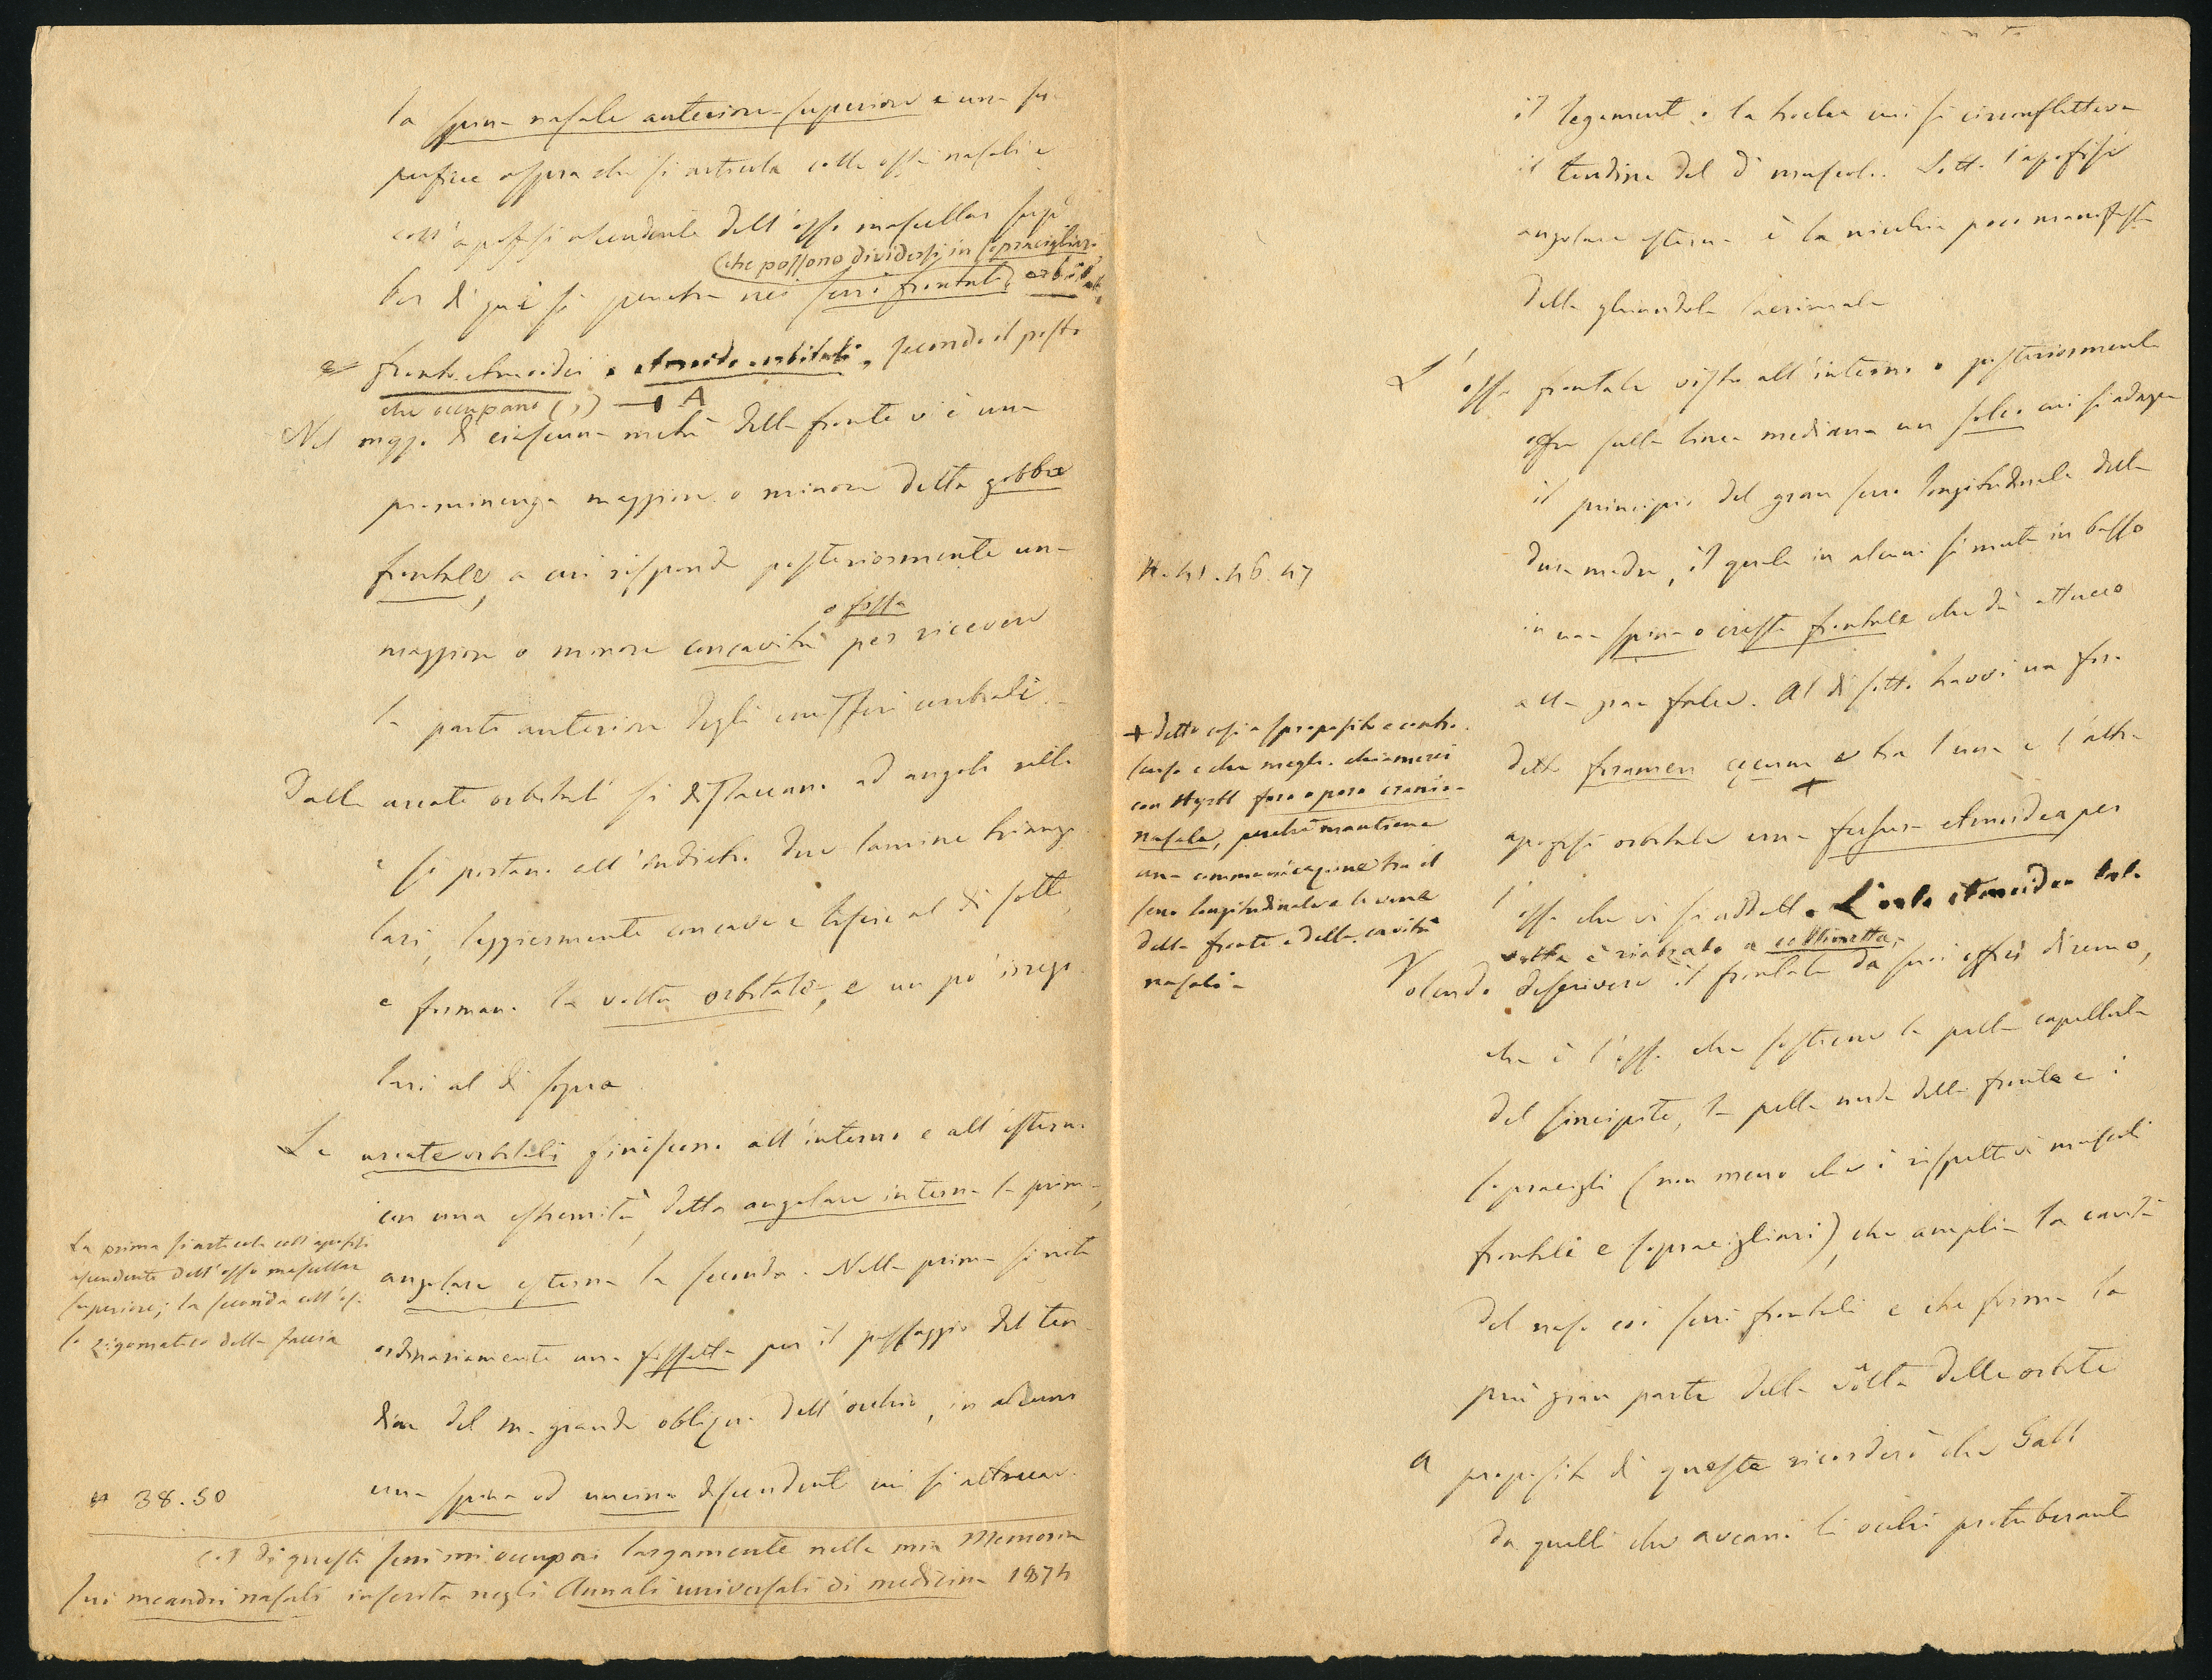 la spina nasale anteriore superiore e una su-
perficie aspra che si articola colle ossa nasali e
coll'apofisi ascendente dell'osso mascellar sup.e
(che possono dividersi in sopracigliari
Per di qui si penetra nei seni frontali, orbitali,
e fronto-etmoidei e etmoido-orbitali, secondo il posto
che occupano (1) A
Nel mezzo di ciascuna metà della fronte vi è una
prominenza maggiore o minore detta gobba
frontale, a cui risponde posteriormente una
o fossa
maggiore o minore concavità per ricevere
la parte anteriore degli emisferi cerebrali.
Dalle arcate orbitali si distaccano ad angolo retto
e si portano all'indietro due lamine triango-
lari, leggiermente concave e liscie al di sotto,
e formano la volta orbitale, e un po' irrego-
lari al di sopra
Le arcate orbitali finiscono all'interno e all'esterno
con una estremità, detta angolare interna la prima,
angolare esterna la seconda. Nella prima si nota
ordinariamente una fossetta per il passaggio del ten-
dine del m. grande obliquo dell'occhio, in alcuni
una spina od uncino discendente cui si attacca
La prima si articola coll'apofisi
ascendente dell'osso mascellar
superiore; la seconda coll'os-
so zigomatico della faccia
# 38.50
(1) Di questi seni mi occupai largamente nella mia Memoria
sui meandri nasali inserita negli Annali universali di medicina 1874
il legamento o la troclea cui si circonfletteva
il tendine del dº muscolo. Sotto l'apofisi
angolare esterna è la nicchia poco manifesta
della ghiandola lacrimale
L'osso frontale visto all'interno o posteriormente
offre sulla linea mediana un solco cui si adagia
il principio del gran seno longitudinale della
dura madre, il quale in alcuni si muta in basso
in una spina o cresta frontale che dà attacco
alla gran falce. Al di sotto havvi un foro
detto foramen cecum e tra l'una e l'altra
+
apofisi orbitale una fessura etmoidea per
l'osso che vi si addatta. L'orlo etmoideo tal
volta è rialzato a collinetta.
Volendo descrivere il frontale da suoi offici diremo,
che è l'osso che sostiene la pelle capelluta
del sincipite, la pelle nuda della fronte e i
sopracigli (non meno che i rispettivi muscoli
frontali e sopracigliari), che amplia la cavità
del naso coi seni frontali e che forma la
più gran parte della vôlta delle orbite
A proposito di queste ricorderò che Gall
da quelli che avean li occhi protuberanti
#. 41.46.47
+ detto così a sproposito e contro
senso e che meglio chiamerei
con Hyrtl foro o poro cranio-
nasale, perchè mantiene
una communicazione tra il
seno longitudinale e le vene
della fronte e della cavità
nasale